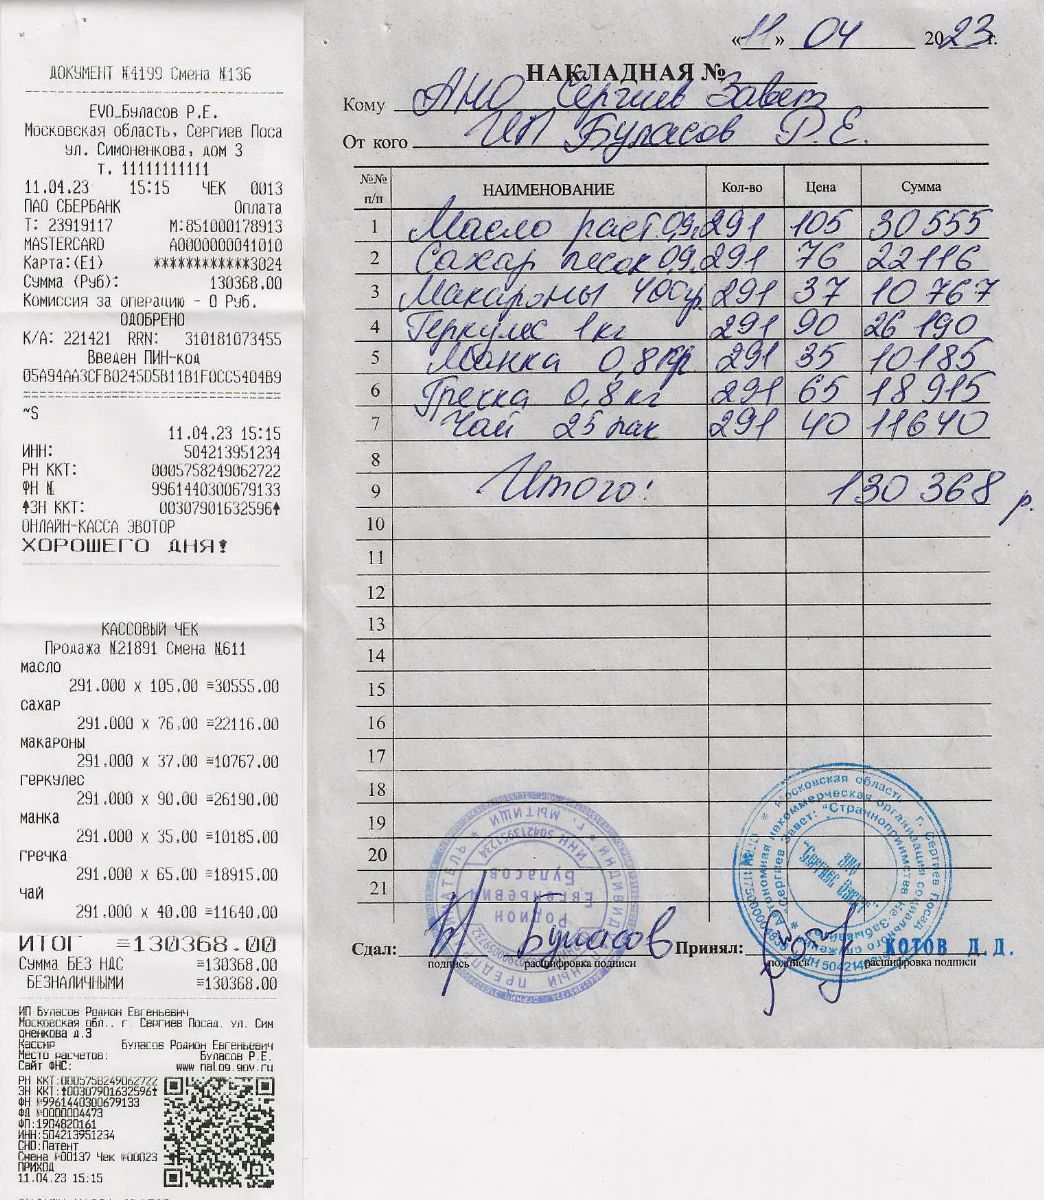 ДОКУМЕНТ №4199 Смена №136
EVO_Буласов Р.Е.
Московская область, Сергиев Поса
ул. Симоненкова, дом 3
т. 11111111111
11.04.23 15:15 ЧЕК 0013
ПАО СБЕРБАНК Оплата
Т: 23919117 М:851000178913
MASTERCARD A0000000041010
Карта:(E1) ************3024
Сумма (Руб): 130368.00
Комиссия за операцию - 0 Руб.
ОДОБРЕНО
К/А: 221421 RRN: 310181073455
Введен ПИН-код
05A94AA3CFB0245D5B11B1F0CC5404B9
~S
11.04.23 15:15
ИНН: 504213951234
РН ККТ: 0005758249062722
ФН № 9961440300679133
ЗН ККТ: 00307901632596
ОНЛАЙН-КАССА ЭВОТОР
ХОРОШЕГО ДНЯ!
КАССОВЫЙ ЧЕК
Продажа №21891 Смена №611
масло
291.000 x 105.00 =30555.00
сахар
291.000 x 76.00 =22116.00
макароны
291.000 x 37.00 =10767.00
геркулес
291.000 x 90.00 =26190.00
манка
291.000 x 35.00 =10185.00
гречка
291.000 x 65.00 =18915.00
чай
291.000 x 40.00 =11640.00
ИТОГ =130368.00
Сумма БЕЗ НДС =130368.00
БЕЗНАЛИЧНЫМИ =130368.00
ИП Буласов Родион Евгеньевич
Московская обл., г. Сергиев Посад, ул. Сим
оненкова д.3
Кассир Буласов Родион Евгеньевич
Место расчетов: Буласов Р.Е.
Сайт ФНС: www.nalog.gov.ru
РН ККТ:0005758249062722
ЗН ККТ:00307901632596
ФН №9961440300679133
ФД №0000004473
ФП:1904820161
ИНН:504213951234
СНО:Патент
Смена №00137 Чек №00023
ПРИХОД
11.04.23 15:15
«11» 04 2023 г.
НАКЛАДНАЯ №
Кому АНО Сергиев Завет
От кого ИП Буласов Р.Е.
№№ п/п НАИМЕНОВАНИЕ Кол-во Цена Сумма
1 Масло раст 0,9. 291 105 30555
2 Сахар песок 0,9. 291 76 22116
3 Макароны 400гр. 291 37 10767
4 Геркулес 1кг 291 90 26190
5 Манка 0,8 291 35 10185
6 Гречка 0,8 кг 291 65 18915
7 Чай 25 пак 291 40 11640
8
9 Итого! 130368 р.
10
11
12
13
14
15
16
17
18
19
20
21
Сдал: Буласов Принял: КОТОВ Д.Д.
подпись расшифровка подписи подпись расшифровка подписи
ИНДИВИДУАЛЬНЫЙ ПРЕДПРИНИМАТЕЛЬ * г. МЫТИЩИ
ИНН 504213951234
Буласов
Родион
Евгеньевич
Московская область, г. Сергиев Посад
Автономная некоммерческая организация социального служения
"Сергиев Завет: "Странноприимства не Забывайте"
АНО
"Сергиев Завет"